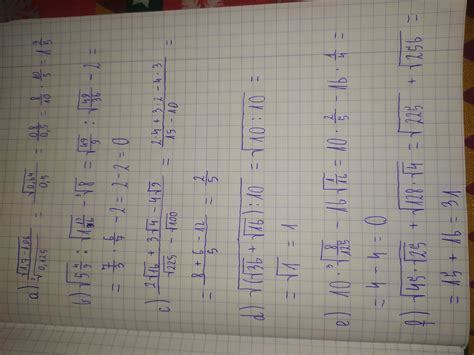 a) √(1,7-1,06) / ∛0,125 = √0,64 / 0,5 = 0,8 / 0,5 = 8/10 · 10/5 = 1 3/5
b) √(5 4/9) : √(1 13/36) - ³√8 = √(49/9) : √(49/36) - 2 =
= 7/3 · 6/7 - 2 = 2 - 2 = 0
c) (2√16 + 3√4 - 4√9) / (√225 - √100) = (2·4 + 3·2 - 4·3) / (15 - 10) =
= (8 + 6 - 12) / 5 = 2/5
d) √((√36 + √16) : 10) = √(10 : 10) =
= √1 = 1
e) 10 · ³√(8/125) - 16 √(1/16) = 10 · 2/5 - 16 · 1/4 =
= 4 - 4 = 0
f) √(45·√25) + √(128·√4) = √225 + √256 =
= 15 + 16 = 31